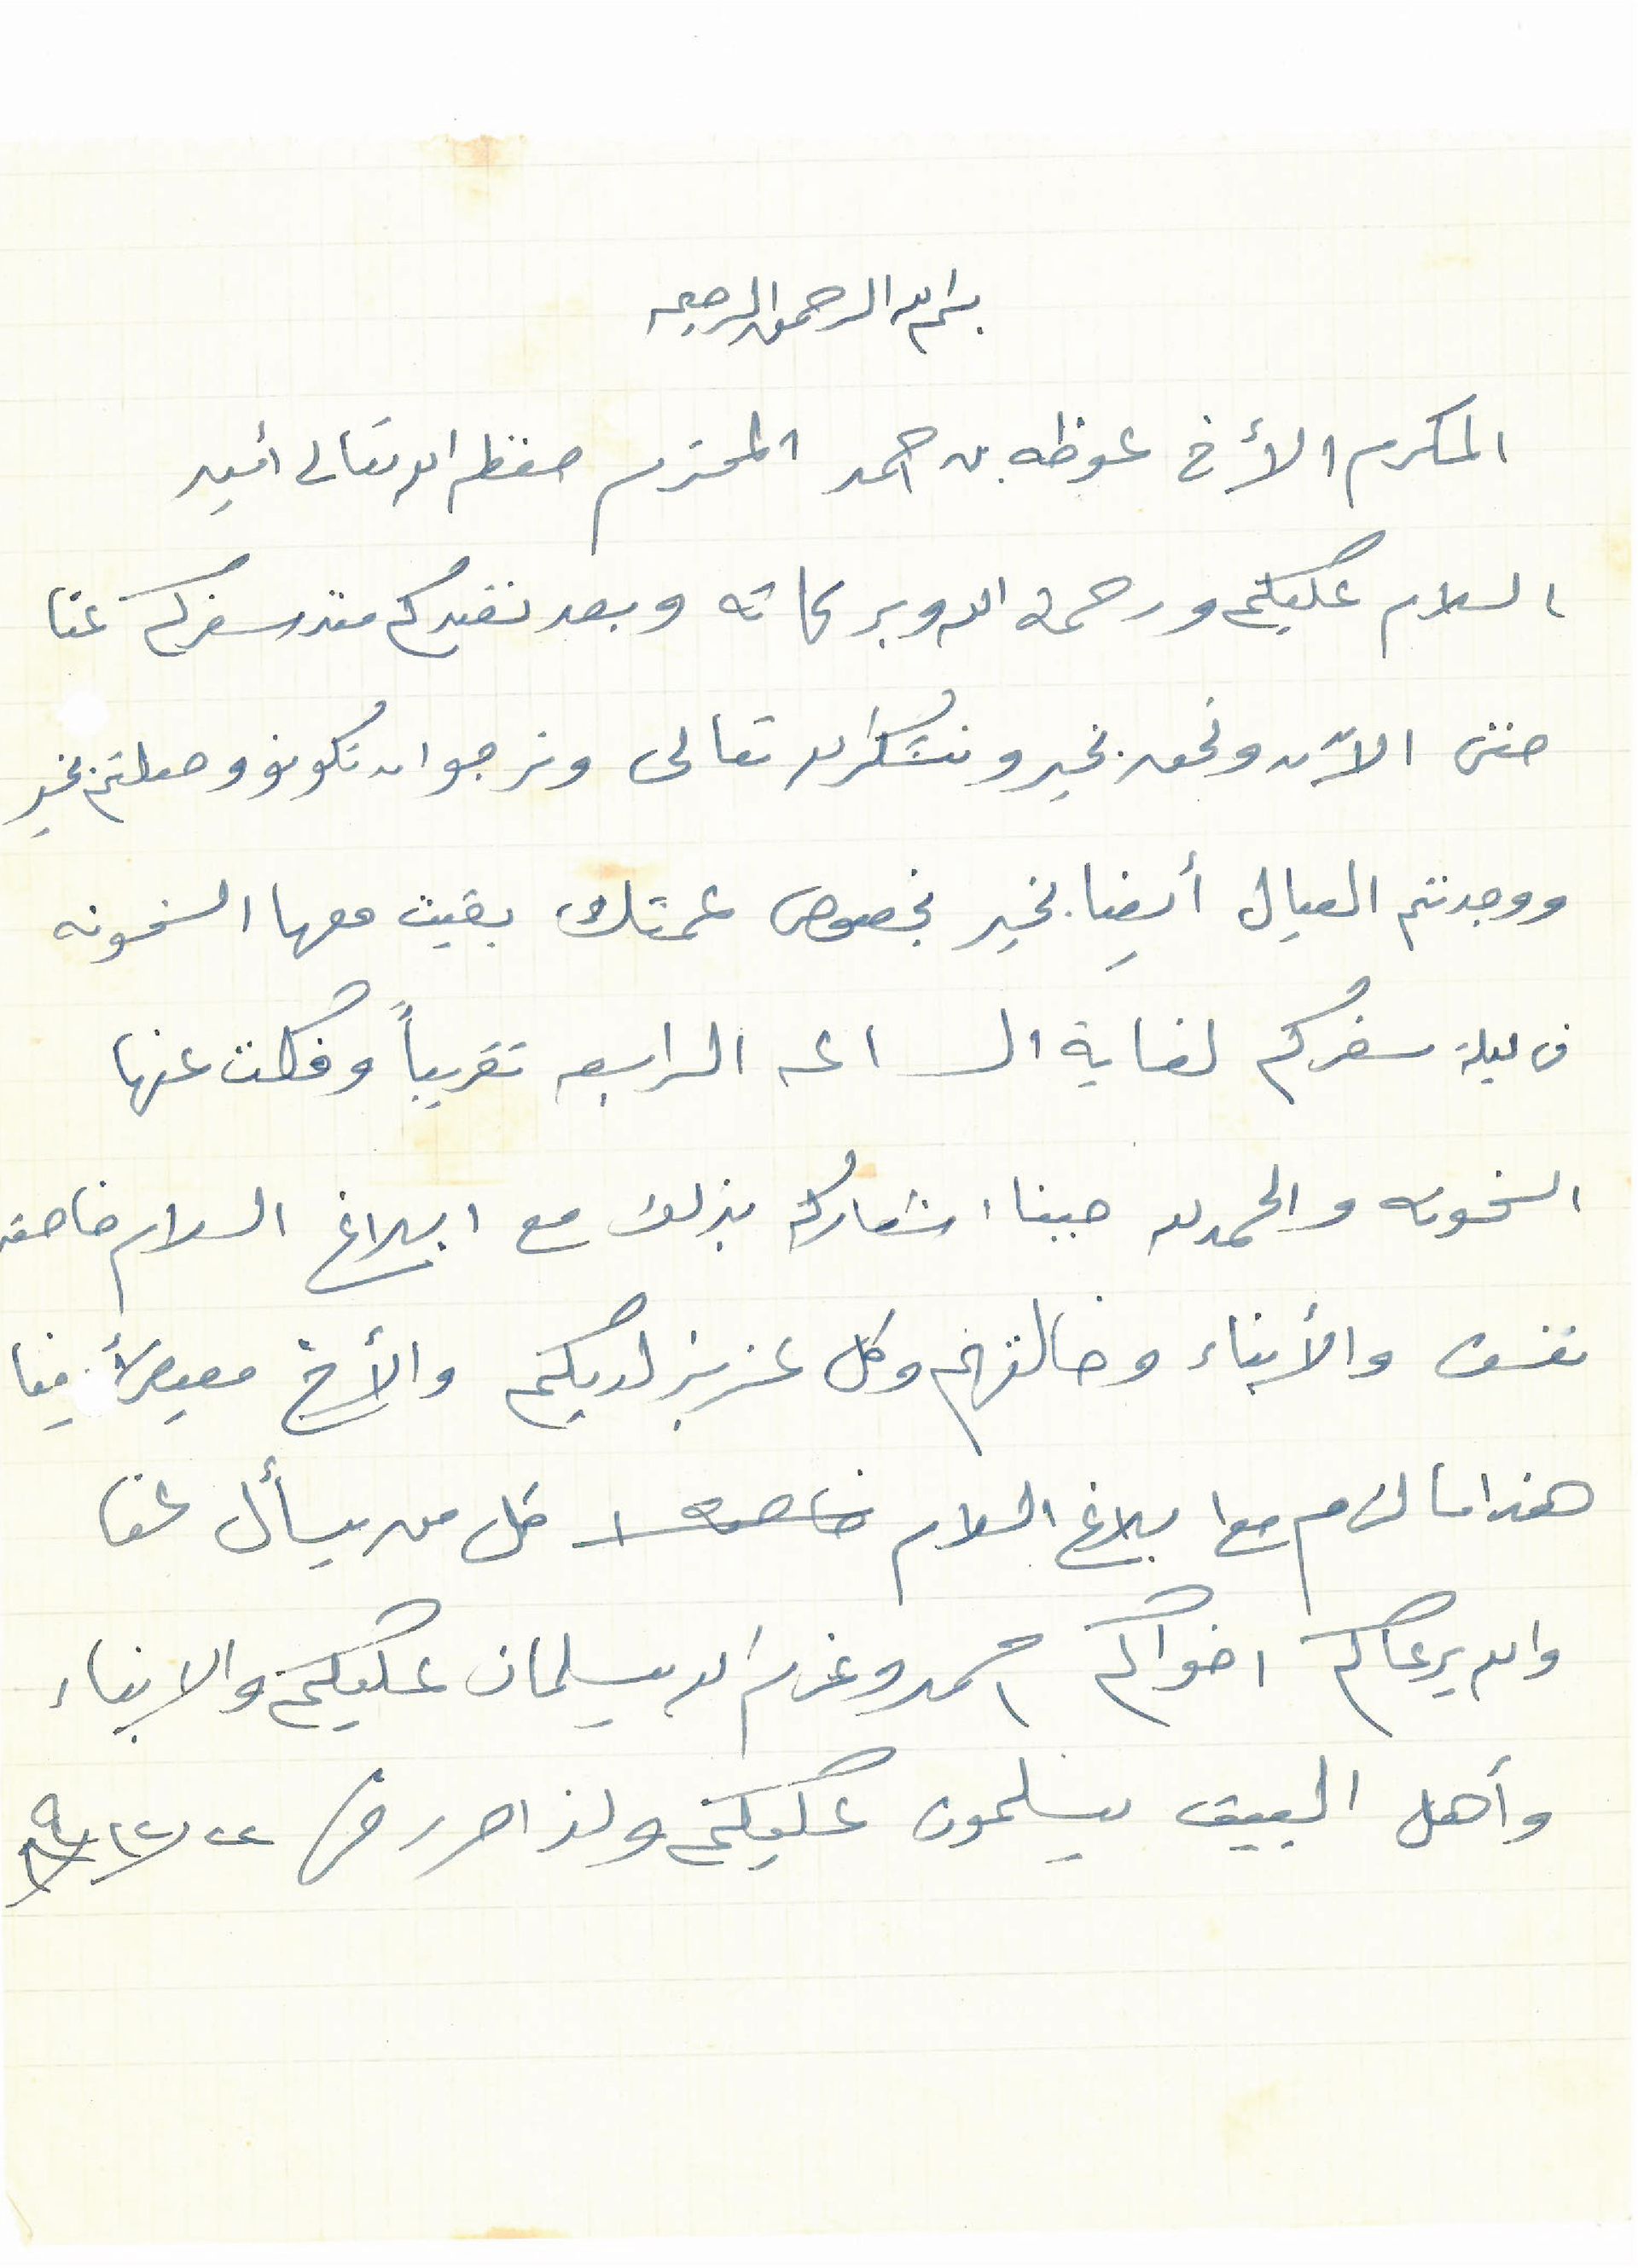 بسم الله الرحمن الرحيم
المكرم الأخ عوظه بن احمد المحترم حفظه الله تعالى أمين
السلام عليكم ورحمة الله وبركاته وبعد نفيدكم منذ سفركم عنا
حتى الآن ونحن بخير ونشكر الله تعالى ونرجوا ان تكونو وصلتم بخير
ووجدتم العيال أيضا بخير بخصوص عمتك بقيت معها السخونه
في ليلة سفركم لغاية الساعه الرابعه تقريباً وفكت عنها
السخونه والحمد لله حبينا اشعارك بذلك مع ابلاغ السلام خاصة
نفسك والأبناء وخالتهم وكل عزيز لديكم والأخ معيض منا
هذا ما لزم مع ابلاغ السلام كل من يسأل عنا
والله يرعاكم اخوانكم احمد وغرم الله يسلمان عليكم والابناء
وأهل البيت يسلمون عليكم ولذا حرر في